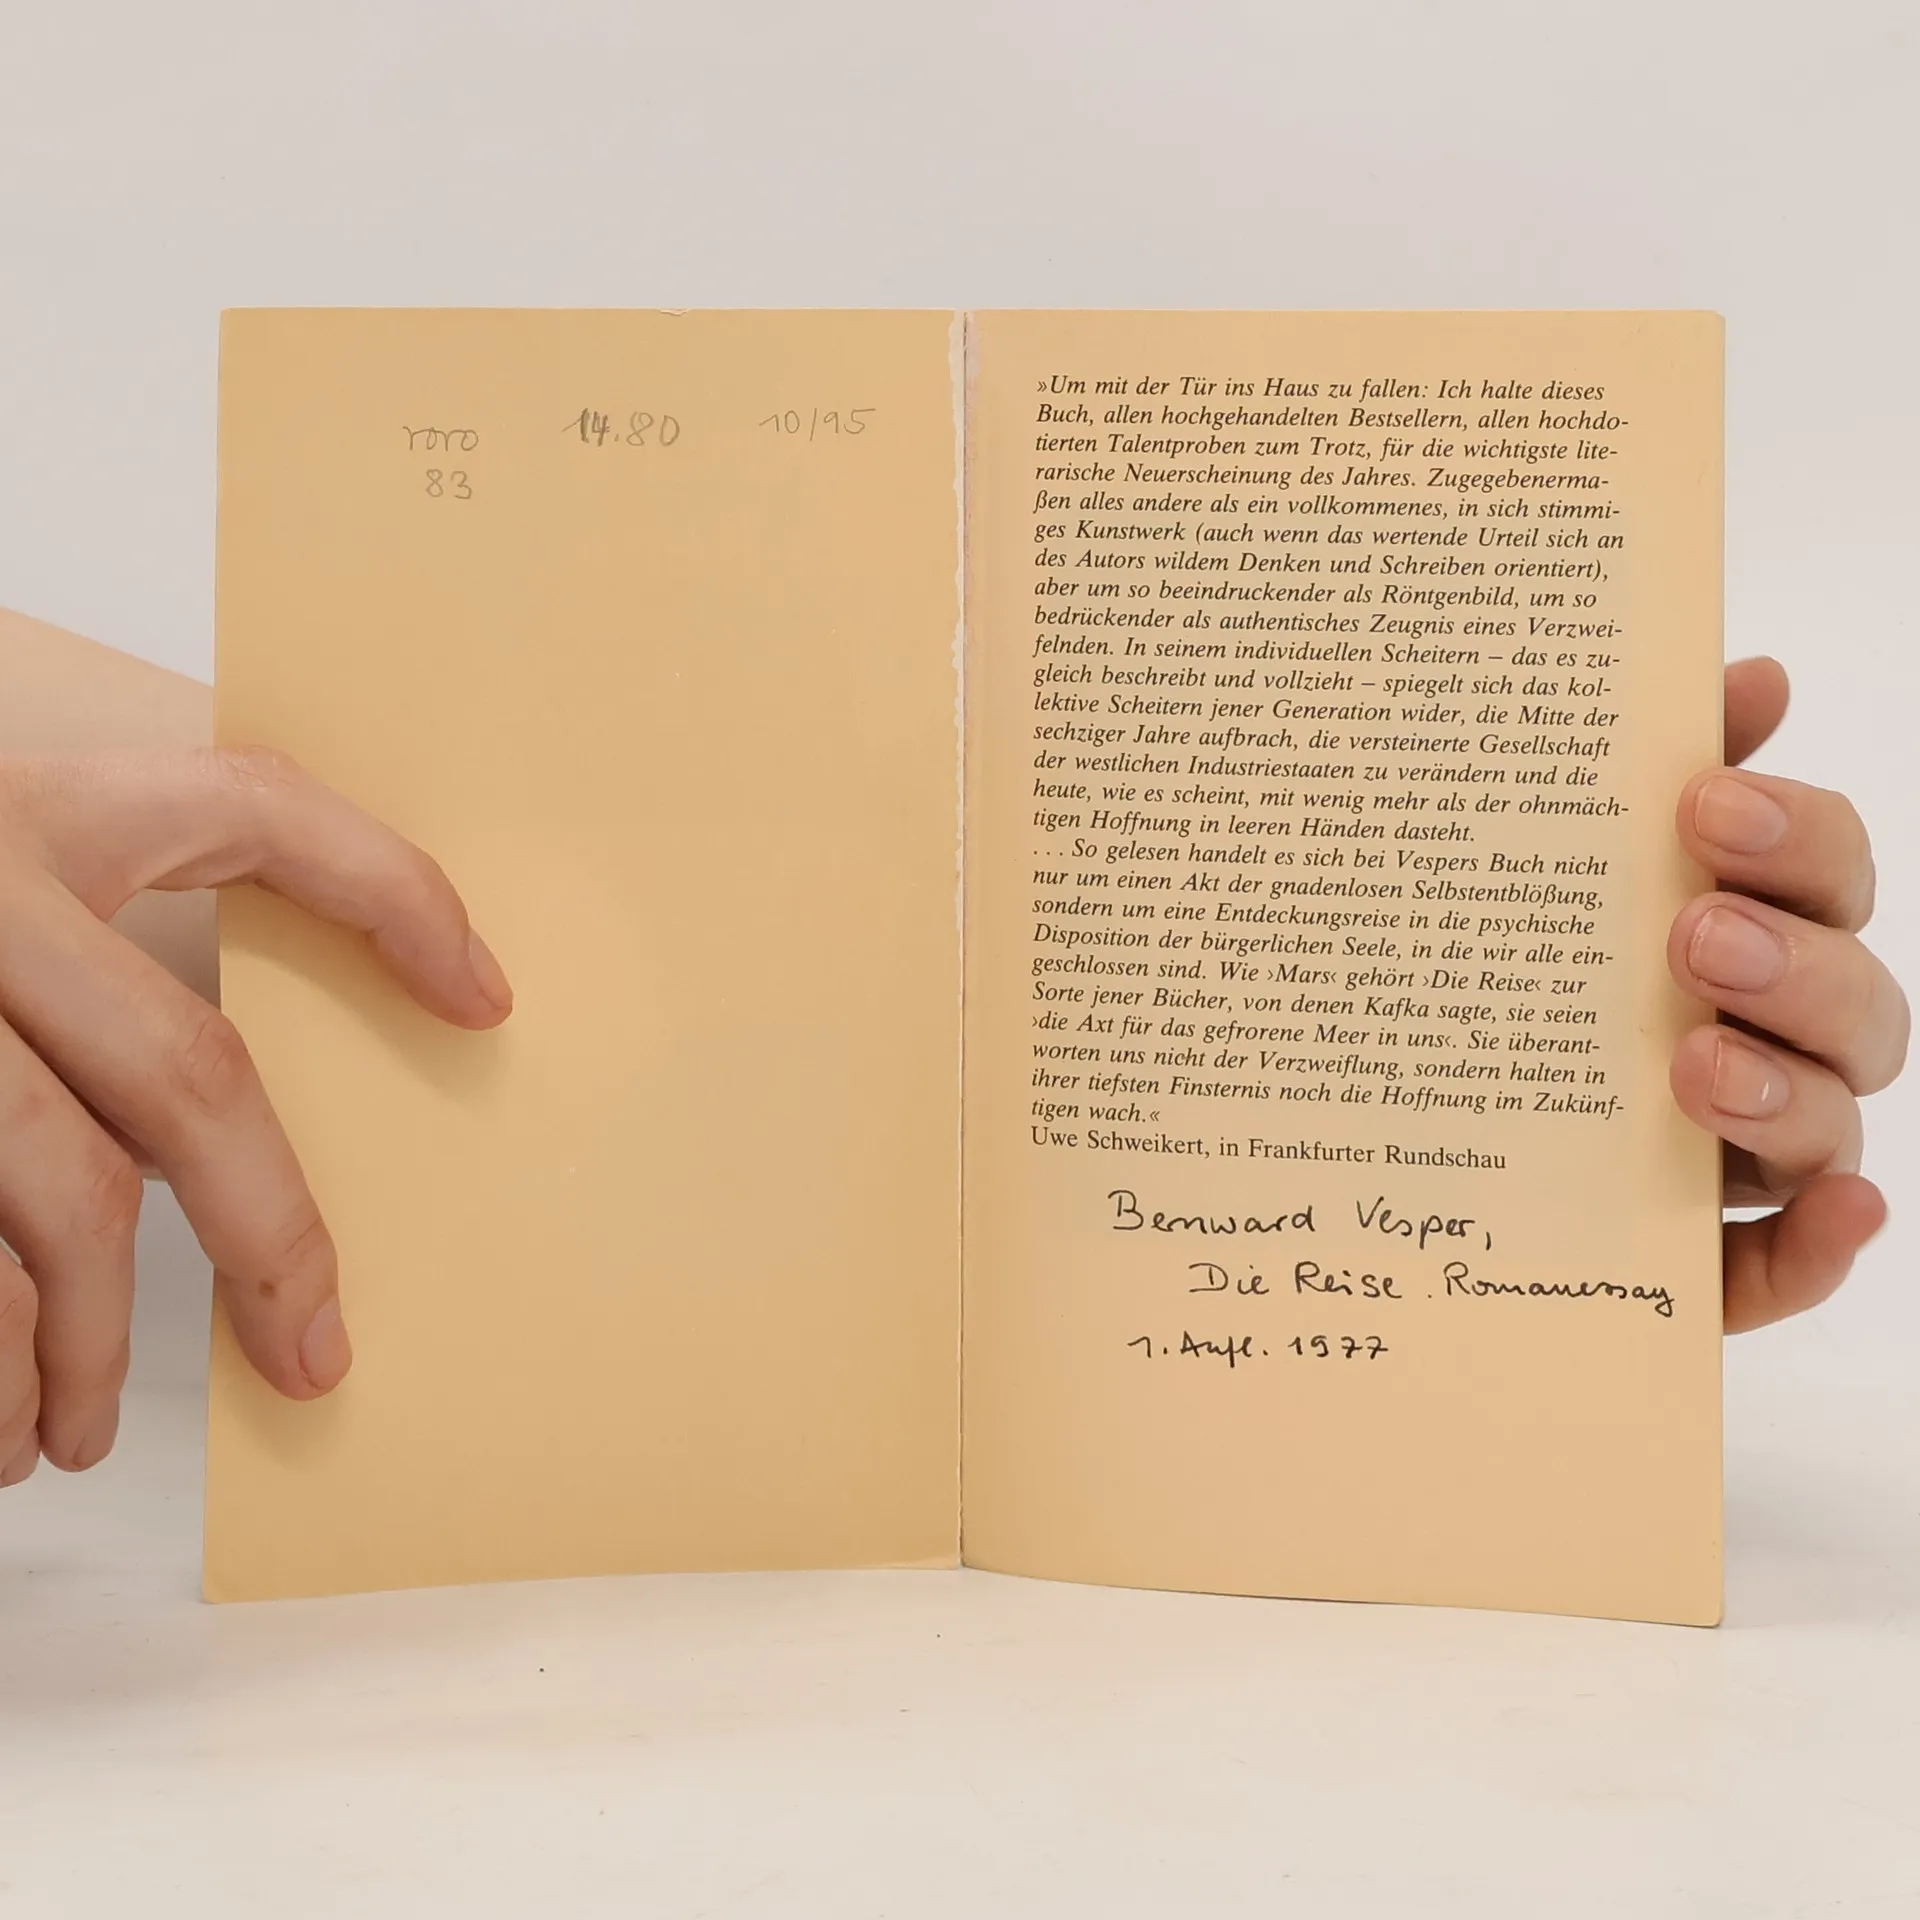 roro 14.80 10/95
83
»Um mit der Tür ins Haus zu fallen: Ich halte dieses
Buch, allen hochgehandelten Bestsellern, allen hochdo-
tierten Talentproben zum Trotz, für die wichtigste lite-
rarische Neuerscheinung des Jahres. Zugegebenerma-
ßen alles andere als ein vollkommenes, in sich stimmi-
ges Kunstwerk (auch wenn das wertende Urteil sich an
des Autors wildem Denken und Schreiben orientiert),
aber um so beeindruckender als Röntgenbild, um so
bedrückender als authentisches Zeugnis eines Verzwei-
felnden. In seinem individuellen Scheitern – das es zu-
gleich beschreibt und vollzieht – spiegelt sich das kol-
lektive Scheitern jener Generation wider, die Mitte der
sechziger Jahre aufbrach, die versteinerte Gesellschaft
der westlichen Industriestaaten zu verändern und die
heute, wie es scheint, mit wenig mehr als der ohnmäch-
tigen Hoffnung in leeren Händen dasteht.
. . . So gelesen handelt es sich bei Vespers Buch nicht
nur um einen Akt der gnadenlosen Selbstentblößung,
sondern um eine Entdeckungsreise in die psychische
Disposition der bürgerlichen Seele, in die wir alle ein-
geschlossen sind. Wie ›Mars‹ gehört ›Die Reise‹ zur
Sorte jener Bücher, von denen Kafka sagte, sie seien
›die Axt für das gefrorene Meer in uns‹. Sie überant-
worten uns nicht der Verzweiflung, sondern halten in
ihrer tiefsten Finsternis noch die Hoffnung im Zukünf-
tigen wach.«
Uwe Schweikert, in Frankfurter Rundschau
Bernward Vesper,
Die Reise. Romanessay
1. Aufl. 1977